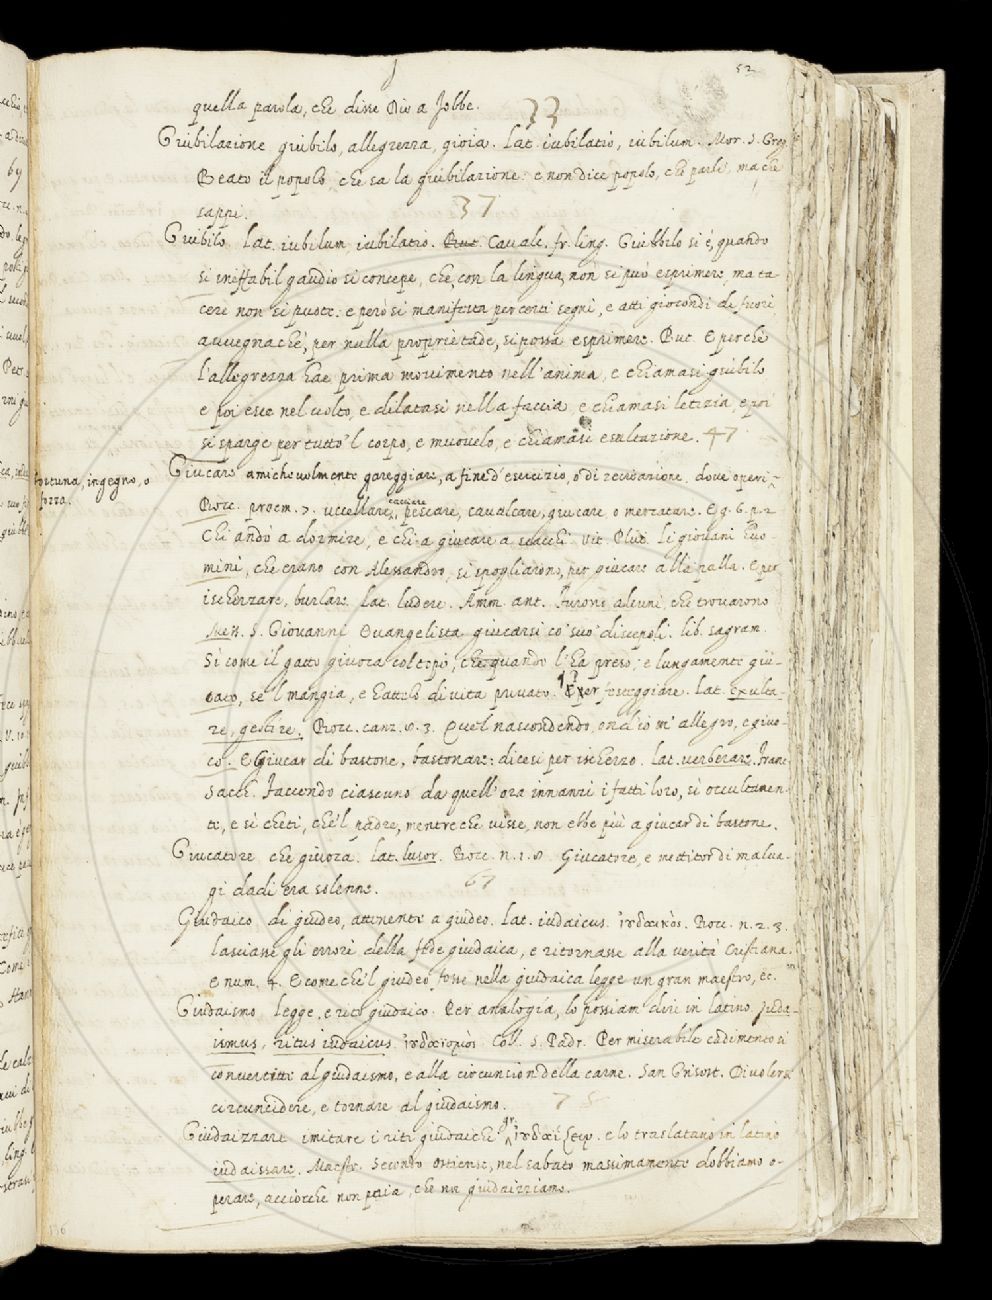 52
quella parola, che disse Dio a Jobbe.
33
Giubilazione giubilo, allegrezza, gioia. Lat. iubilatio, iubilum. Mor. S. Greg.
Beato il popolo, che sa la giubilazione: e non dice popolo, che parli, ma che
sappi.
37
Giubilo Lat. iubilum iubilatio. But. Cavalc. fr. ling. Giubbilo si è, quando
si ineffabil gaudio si concepe, che con la lingua non si può esprimere, ma ta-
cere non si puote: e però si manifesta per certi segni, e atti giocondi di fuori,
avvegnachè, per nulla proprietade, si possa esprimere. But. E perchè
l'allegrezza hae prima movimento nell'anima, e chiamasi giubilo
e poi esce nel volto, e dilatasi nella faccia, e chiamasi letizia, e poi
si sparge per tutto 'l corpo, e muovelo, e chiamasi esultazione. 47
Giucare amichevolmente gareggiare, a fine d'esercizio, o di recreazione, dove operi
fortuna, ingegno, o
forza.
Bocc. proem. 7. uccellare, cacciare pescare, cavalcare, giucare o mercatare. E g. 6. p. 2
Chi andò a dormire, e chi a giucare a scacchi. Vit. Plut. Li giovani huo-
mini, che erano con Alessandro, si spogliarono, per giucare alla palla. E per
ischerzare, burlare. Lat. ludere. Amm. ant. Furono alcuni, che trovarono
Mess. S. Giovanni Evangelista giucarsi co' suo' discepoli. lib. sagram.
Sì come il gatto giuoca col topo, che quando l'ha preso, e lungamente giu-
cato, se 'l mangia, e hattolo di vita privato. E per festeggiare. Lat. exulta-
re, gestire. Bocc. canz. 8. 3. Quel nascondendo, ond'io m'allegro, e giuo-
co. E Giucar di bastone, bastonare: dicesi per ischerzo. Lat. verberare. Franc.
Sacch. Faccendo ciascuno da quell'ora innanzi i fatti loro, sì occultamen-
te, e sì cheti, che 'l padre, mentre che visse, non ebbe più a giucar di bastone.
Giucatore che giuoca. Lat. lusor. Bocc. n. 1. 8 Giucatore, e mettitor di malva-
gi dadi era solenne.
67
Giudaico di giudeo, attenente a giudeo. Lat. iudaicus. ἰουδαικὸς. Bocc. n. 2. 3.
lasciasse gli errori della fede giudaica, e ritornasse alla verità Cristiana.
e num. 4. E come che 'l giudeo fosse nella giudaica legge un gran maestro, ec.
Giudaismo Legge, e rito giudaico. Per analogia, lo possiam dire in latino Juda-
ismus, ritus iudaicus. ἰουδαισμὸς Coll. S. Padr. Per miserabile cadimento si
convertitte al giudaismo, e alla circuncion della carne. San Grisost. Si volera
circuncidere, e tornare al giudaismo.
7
Giudaizzare imitare i riti giudaichi gr. ἰουδαίζειν. e lo traslatano in latino
iudaissare. Maestr. Secondo ostiense, nel sabato massimamente dobbiamo o-
perare, acciocchè non paia, che noi giudaizziamo.
136